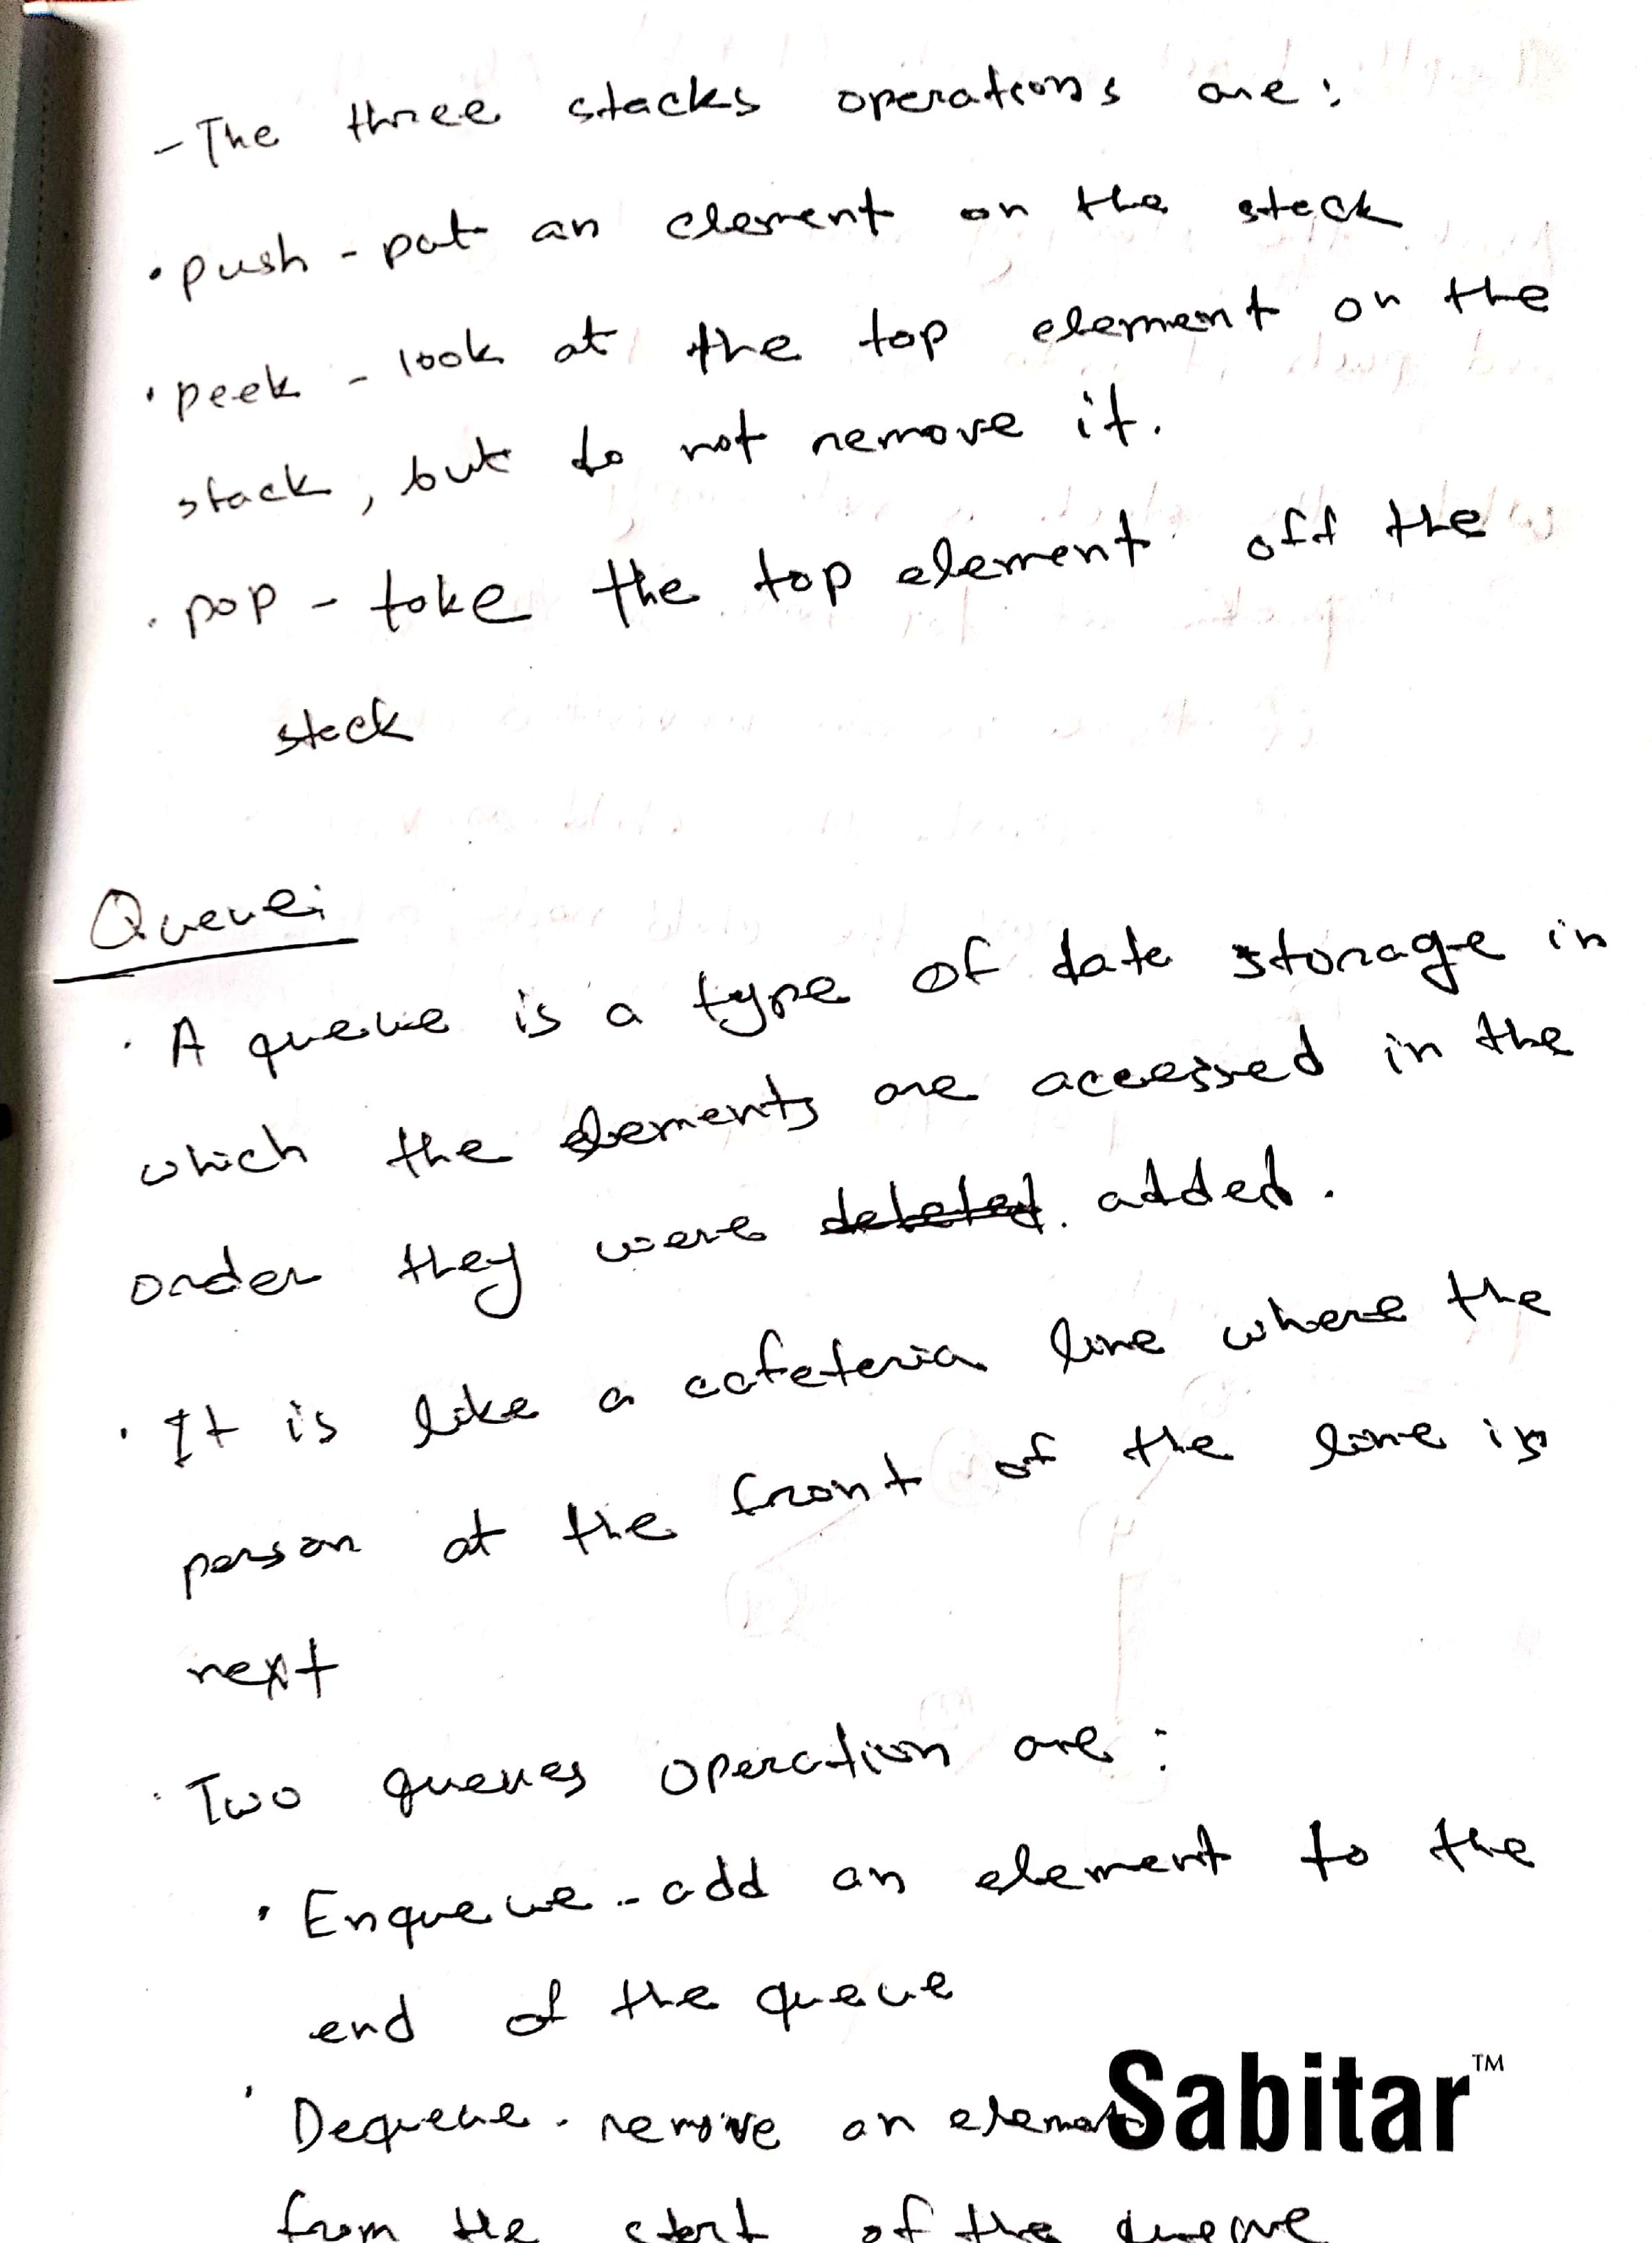 - The three stacks operations are:
• push - put an element on the stack
• peek - look at the top element on the
stack, but do not remove it.
• pop - take the top element off the
stack
Queue:
• A queue is a type of data storage in
which the elements are accessed in the
order they were deleted. added.
• It is like a cafeteria line where the
person at the front of the line is
next
• Two queues operation are:
• Enqueue - add an element to the
end of the queue
• Dequeue - remove an element
Sabitar™
from the start of the queue